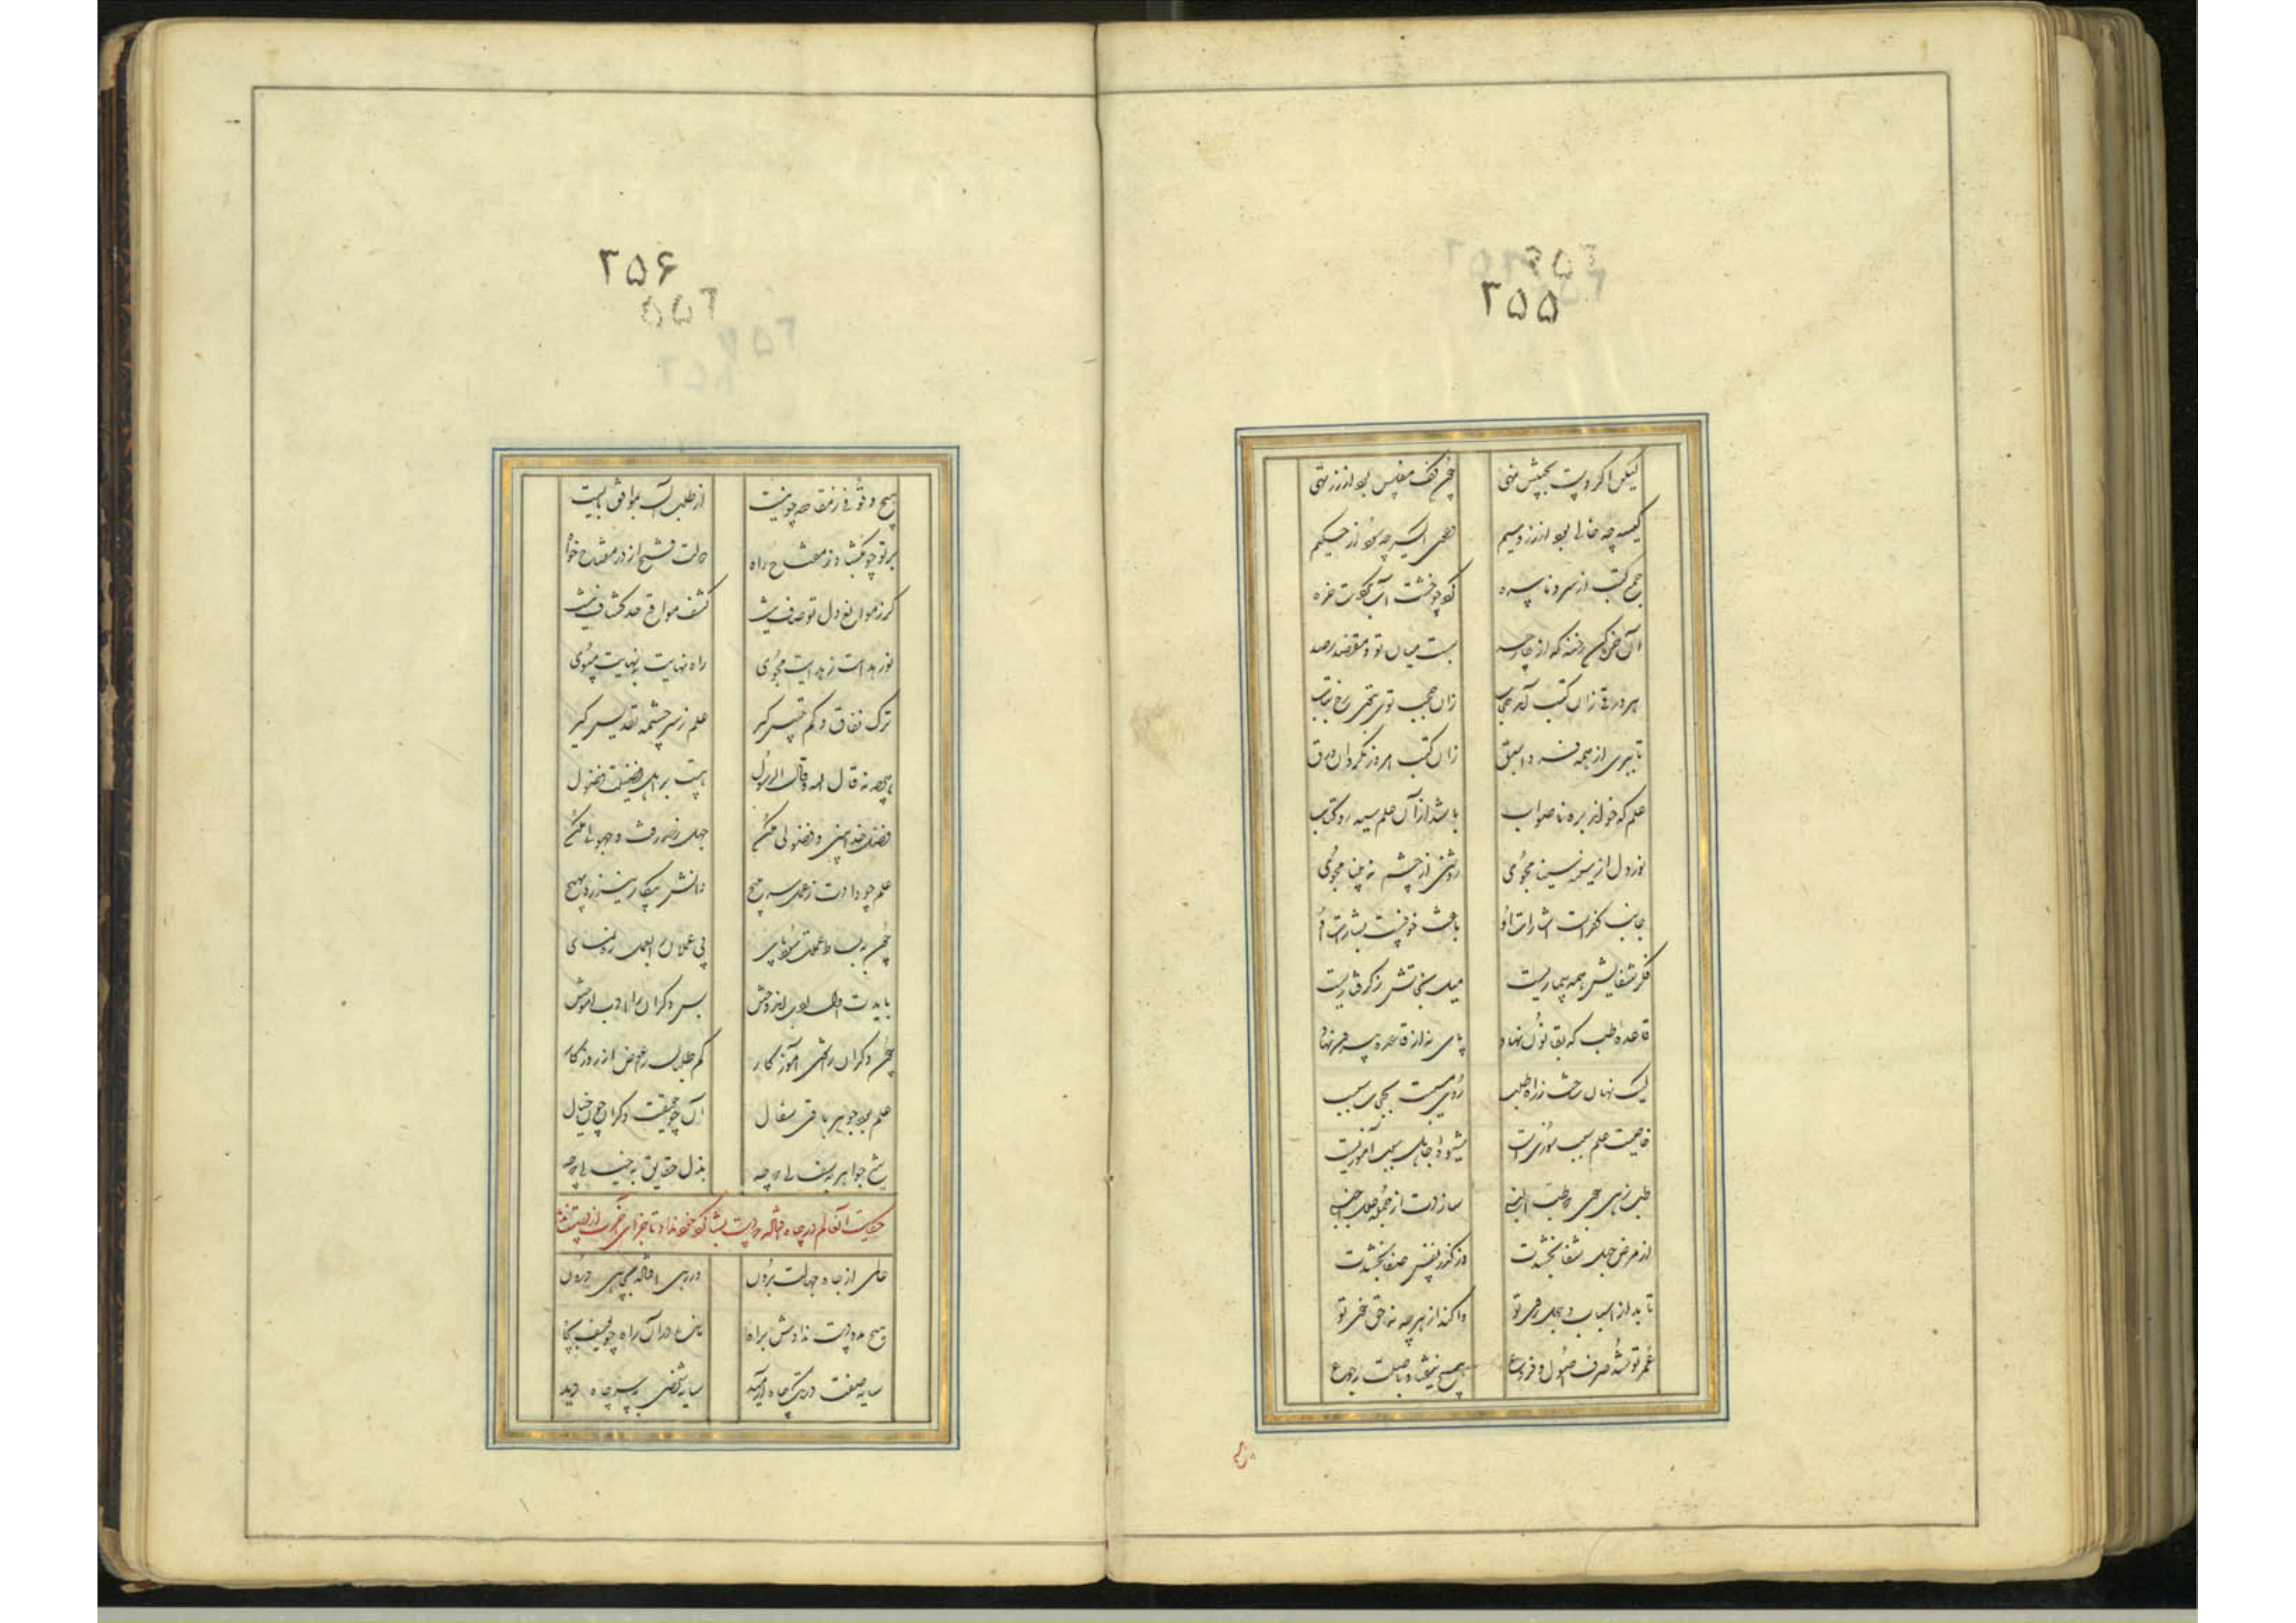 ۲۵۵
لیکن اگر دست بجیبش نهی چون کف مفلس بود از زر تهی
کیسه چه خالی بود از زر و سیم دعوی اکسیر چه سود از حکیم
جمع کتب از سره و ناسره خره
آن خره کن رخنه که از چار حد بست میان تو و مقصد رصد
هر ورقی زان کتب آمد حجاب زان حجب توی بتوی رخ بتاب
تا ببری از همه فردا سبق زان کتب امروز بگردان ورق
علم که خوانی بره ناصواب باشد از آن علم سیه رو کتاب
نور دل از سینه سینا مجوی روشنی از چشم نه بینا مجوی
جانب کفرست اشارات او باعث خوفست بشارات او
فکر شفایش همه بیماریست میل نجاتش ز گرفتاریست
قاعده طب که بقانون نهاد پای نه از قاعده بیرون نهاد
لیک نهان ساخت ز اهل طلب روی مسبب بحجاب سبب
خاصیت علم سبب سوزیست شیوه جاهل سبب آموزیست
طب ز نبی جوی و طب النبی سازدت از جمله علل اجنبی
از مرض جهل شفا بخشدت وز کدر نفس صفا بخشدت
تابد از اسباب و علل روی تو واکند از هرچه نه حق خوی تو
عمر تو شد صرف اصول و فروع هیچ نیفتاد باصلت رجوع
۲۵۶
هیچ وقوفی ز مقاصد چو نیست از طلب آن بمواقف بایست
بر تو چو نگشاد ز مفتاح راه دولت فتح از در مفتاح خواه
گر ز موانع دل تو صاف نیست کشف موانع حد کشاف نیست
نور هدایت ز هدایت مجوی راه نهایت بنهایت مپوی
ترک نفاق و کم تلبیس گیر علم ز سرچشمه تقدیس گیر
هرچه نه قال الله و قال الرسول هست بر اهل فضیلت فضول
فضل خدا بین و فضولی مکن جهل ز حد رفت و جهولی مکن
علم چو دادت ز عمل سر مپیچ دانش بیکار نیرزد بهیچ
چون ببساط عملت سود پای بی عملان را بعمل ره نمای
بایدت اول ادب اندوختن پس دگران را ادب آموختن
چون دگران را شوی آموزگار کم طلب آن را عوض از روزگار
علم بود جوهر و باقی سفال آن چو حقیقت دگران چون خیال
بیع جواهر بسفالی که چه بذل حقایق بخیالی که چه
حکایت آن عالم در چاه افتاده که دست بشاگرد خود نداد تا جزای آخرت از دست
عالمی از چاه جهالت برون در رهی افتاد بچاهی درون
هیچ مدد دست ندادش براه ماند در آن راه چو یوسف بچاه
سایه صفت در تک چاه آرمید سایه شخصی بسر چاه دید